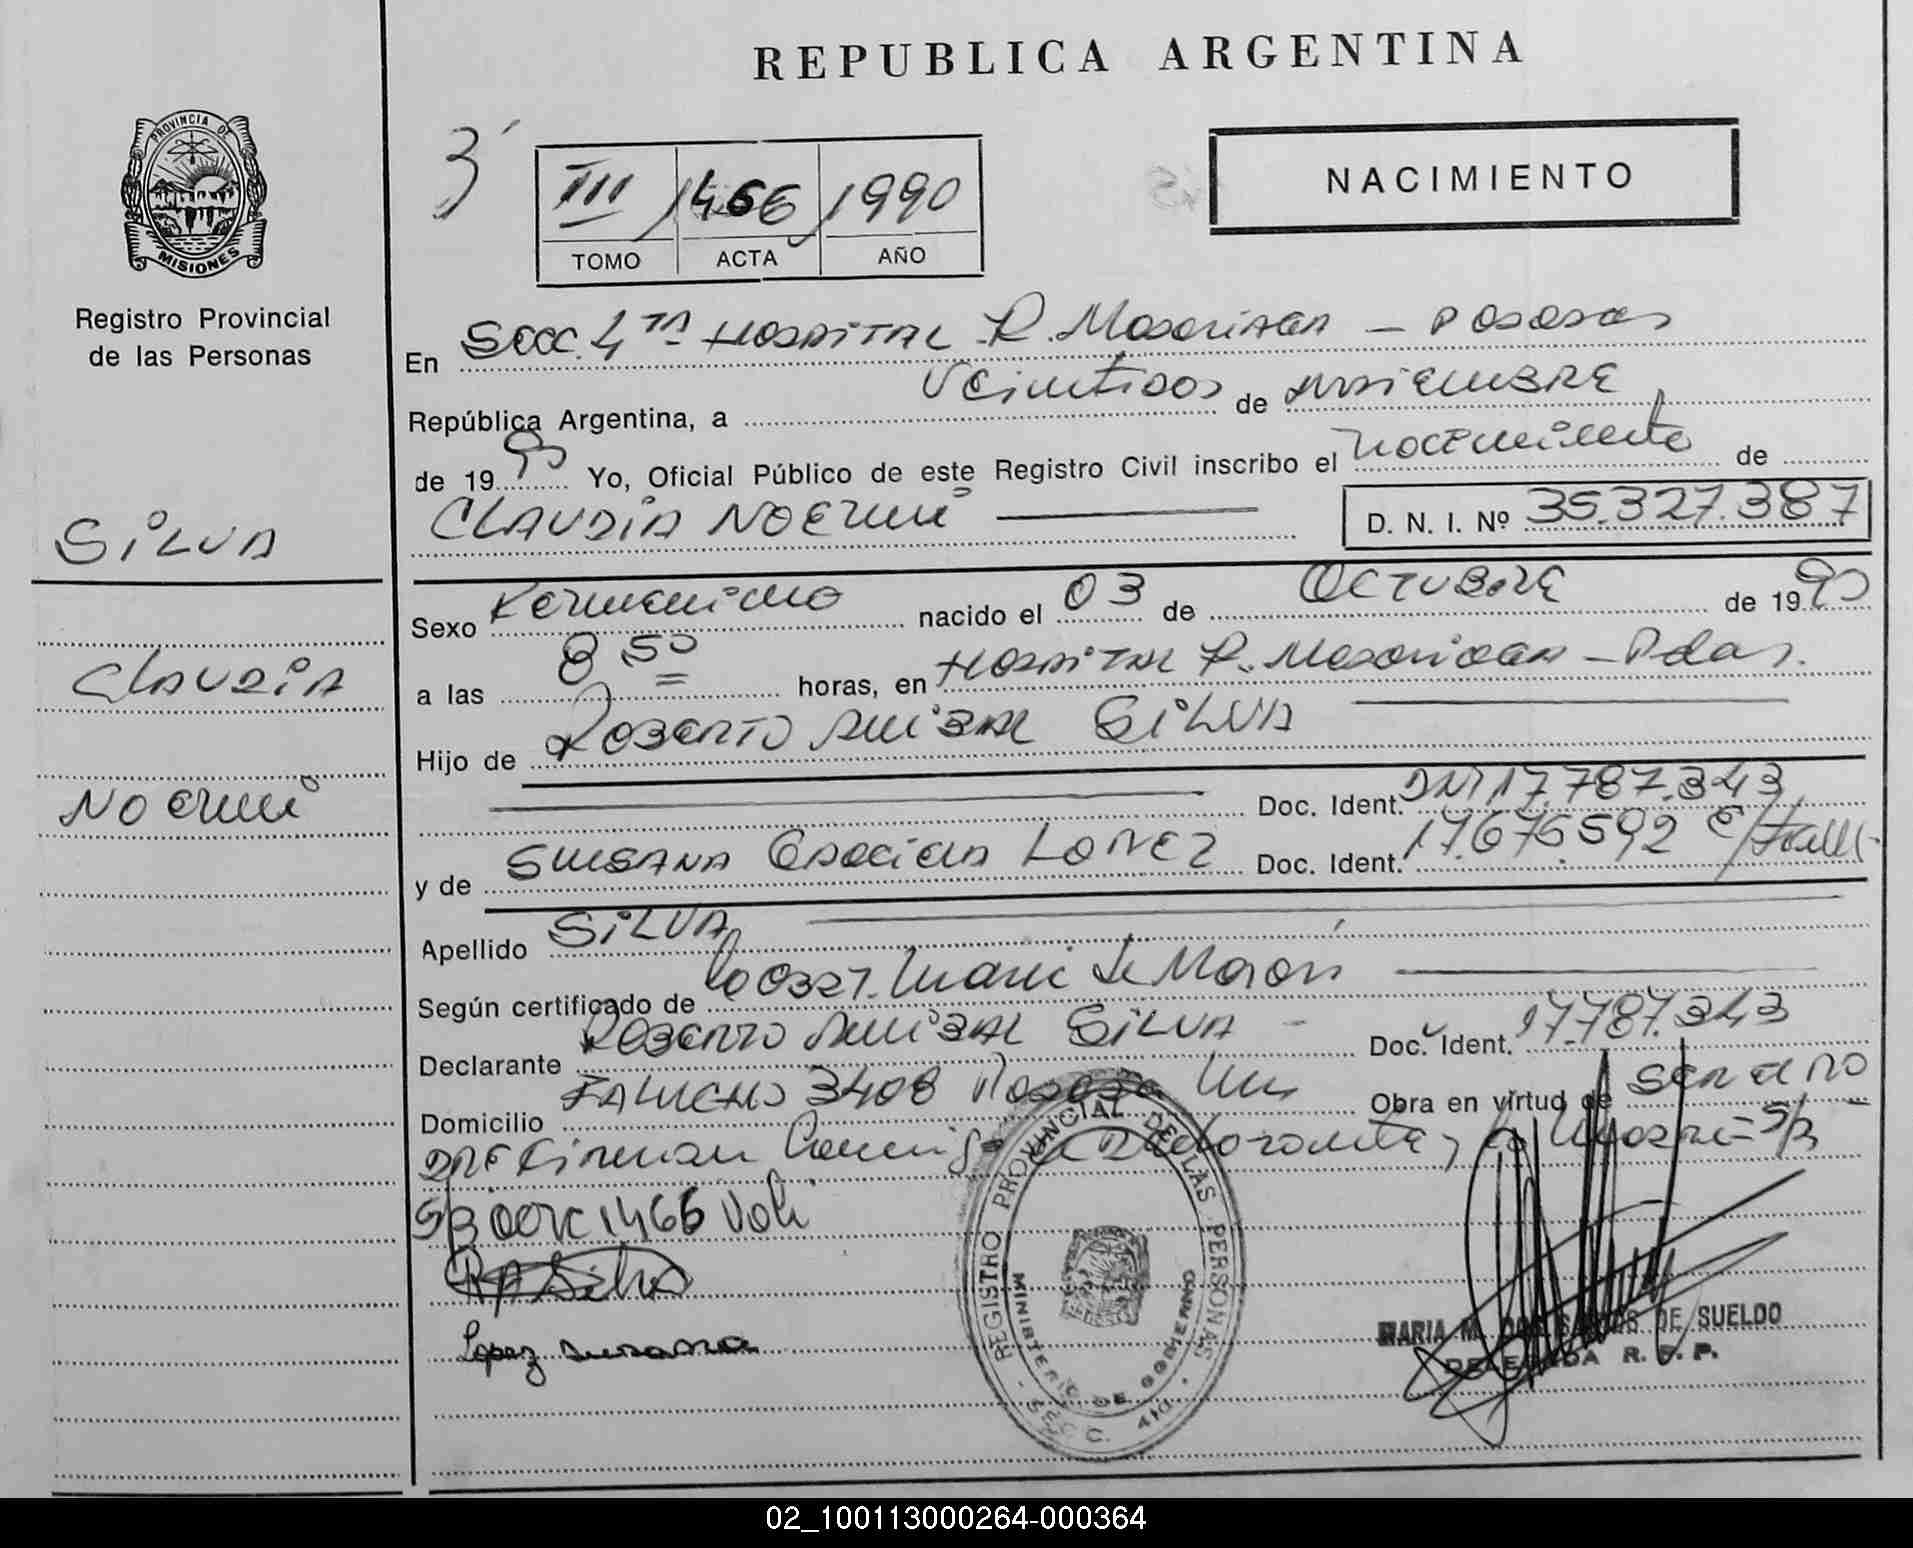 REPUBLICA ARGENTINA
PROVINCIA DE
MISIONES
Registro Provincial
de las Personas
3
III 1466 1990
TOMO ACTA AÑO
NACIMIENTO
En Secc. 4TA Hospital R. Madariaga - Posadas
República Argentina, a Veintidos de Noviembre
de 1990 Yo, Oficial Público de este Registro Civil inscribo el nacimiento de
CLAUDIA NOEMI D. N. I. Nº 35.327.387
SILVA
CLAUDIA
NOEMI
Sexo Femenino nacido el 03 de OCTUBRE de 1990
a las 8 50 horas, en Hospital R. Madariaga - Pdas.
Hijo de ROBERTO ANIBAL SILVA
Doc. Ident. DNI 17.787.343
y de SUSANA Graciela LOPEZ Doc. Ident. 17.676.592
Apellido SILVA
Según certificado de Obst. de Morón
Declarante ROBERTO ANIBAL SILVA - Doc. Ident. 17.787.343
Domicilio FALUCHO 3408 Obra en virtud de ser el PRO
Firman Conmigo Declarante, la Madre - S/B
S/B 1466 Vale
RA Silva
Lopez Susana
REGISTRO PROVINCIAL DE LAS PERSONAS
MINISTERIO DE GOBIERNO
SECC. 4ta.
MARIA M. DOS SANTOS DE SUELDO
DELEGADA R. P. P.
02_100113000264-000364